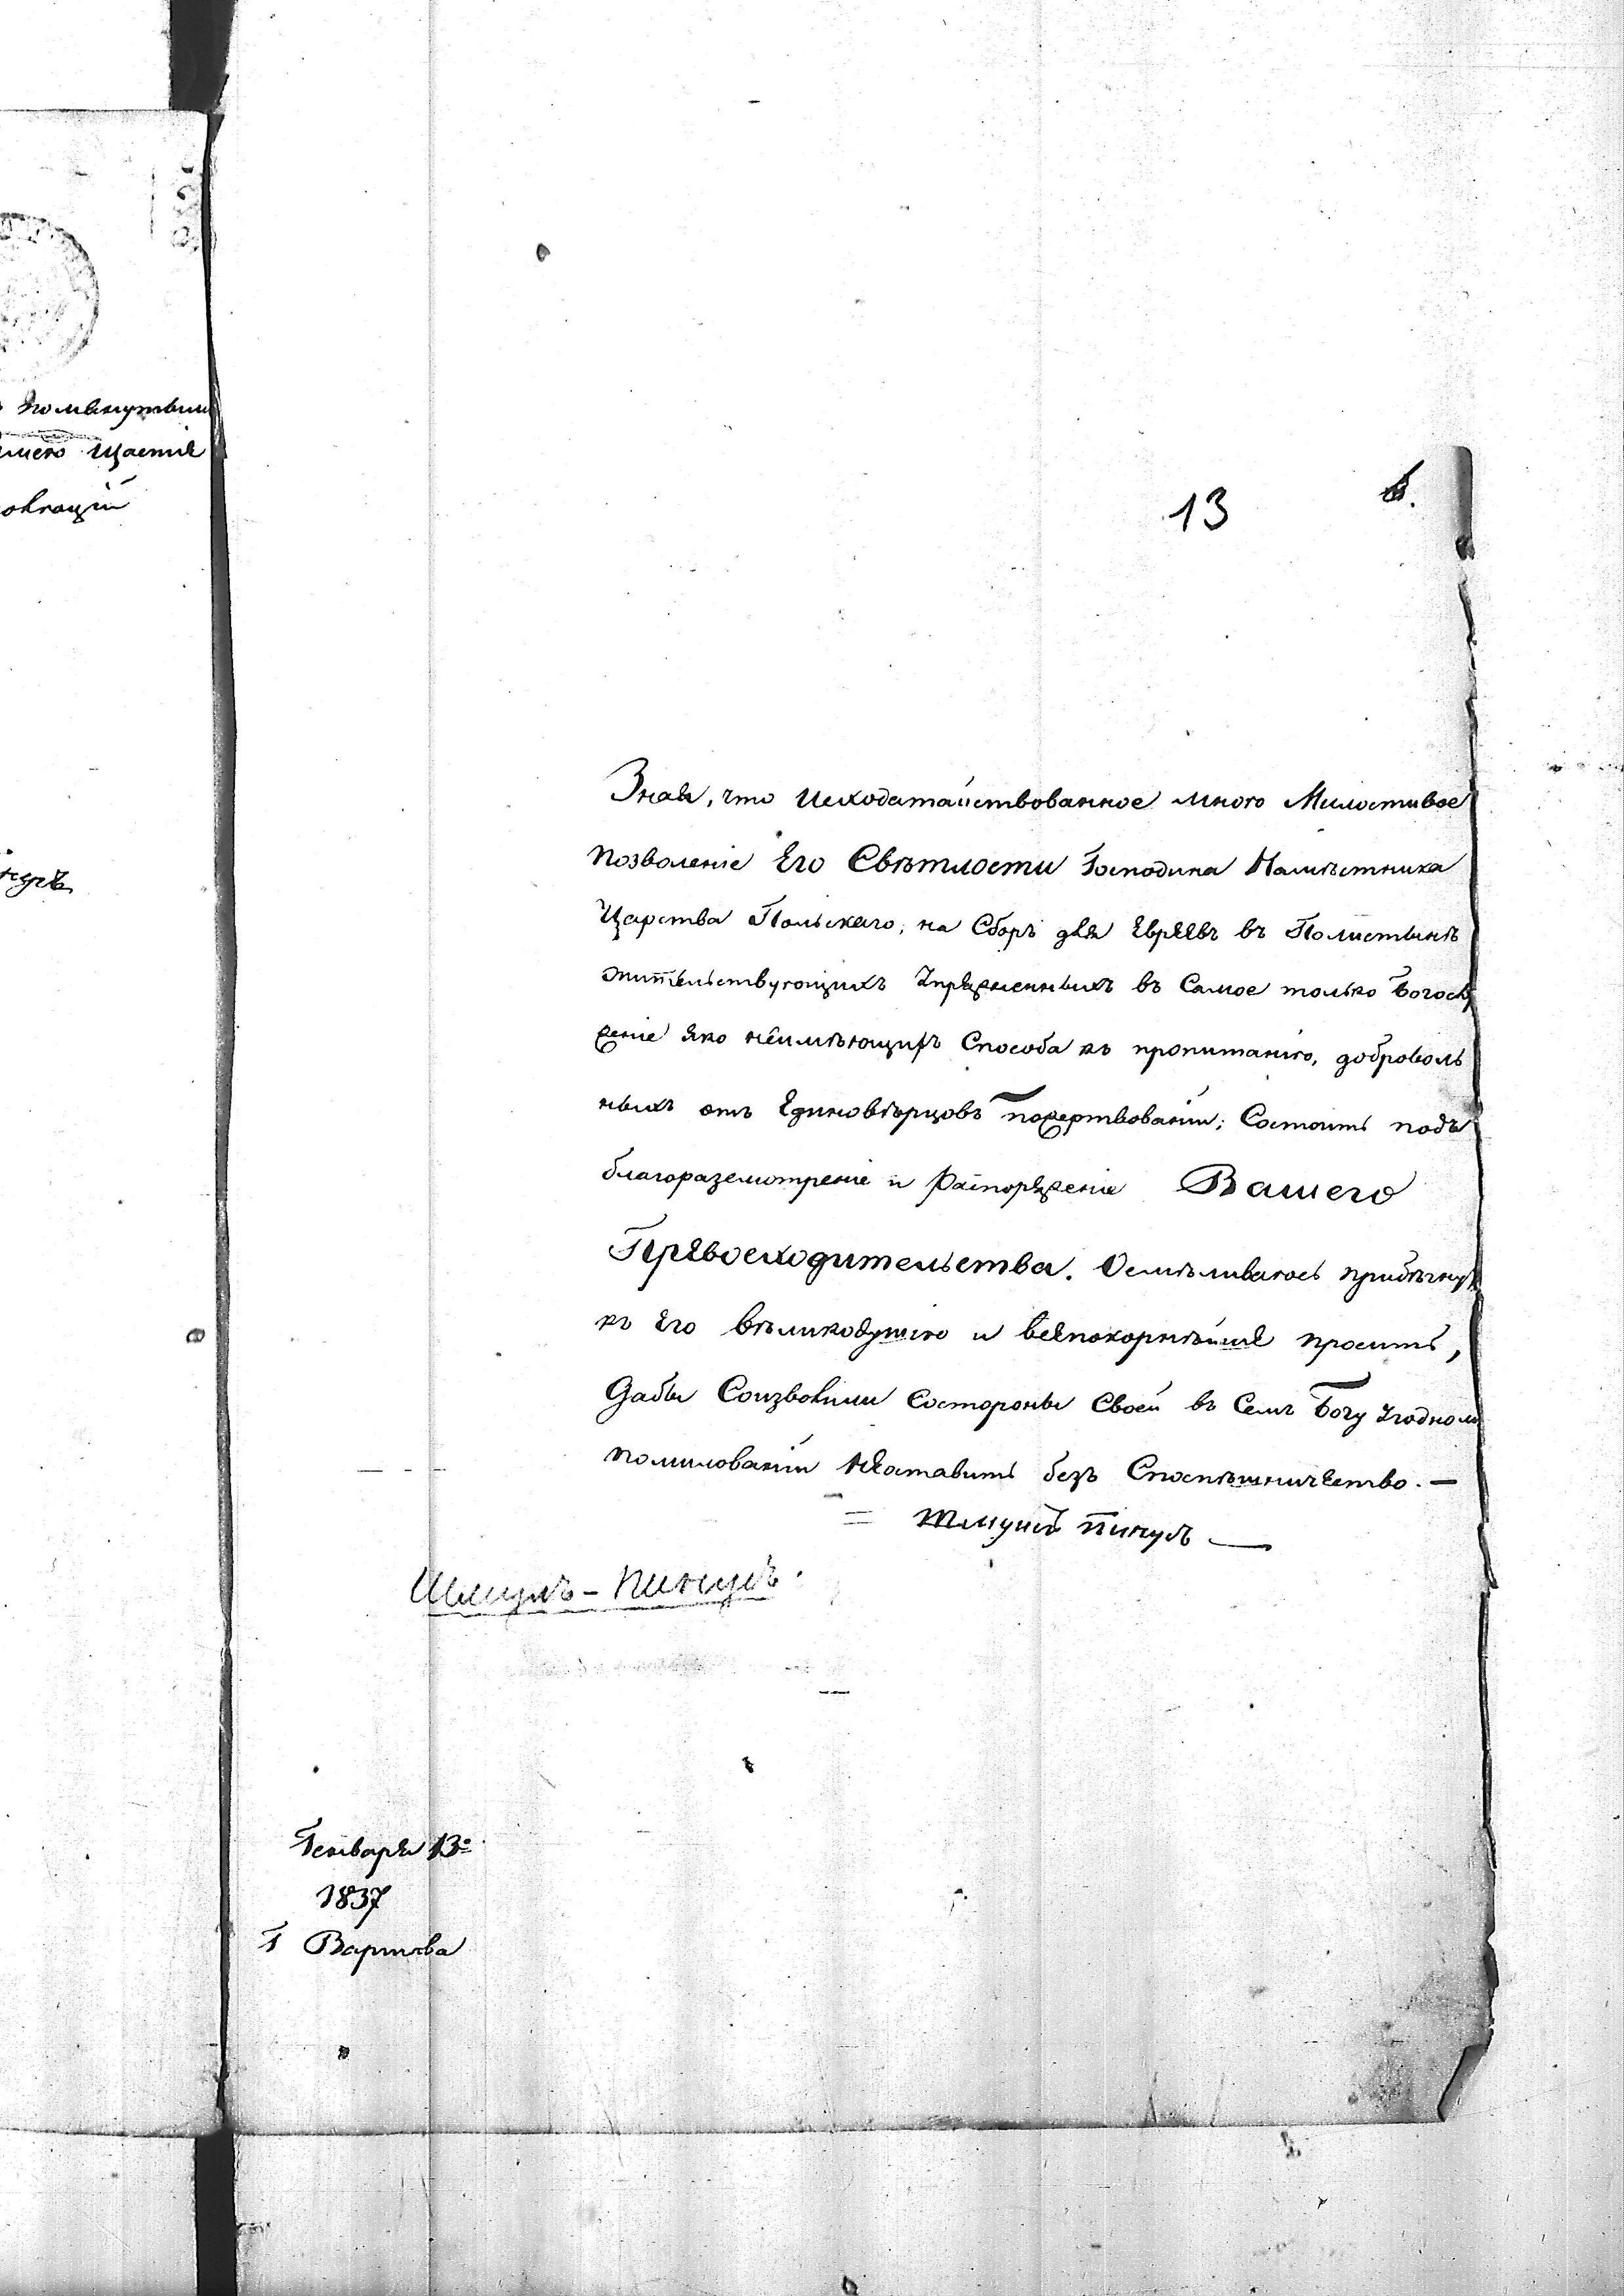 поменутым
щастіе
13
Зная, что исходатайствованное мною Милостивое
позволеніе Его Свѣтлости Господина Намѣстника
Царства Польскаго, на Сборъ для Евреевъ въ Полистынѣ
жительствующихъ Упряжненныхъ въ Самое только Богослу
женіе яко неимѣющихъ Способа къ пропитанію, доброволь
ныхъ отъ Единовѣрцовъ пожертвованіи; Состоитъ подъ
благоразсмотреніе и распоряженіе Вашего
Превосходительства. Осмѣливаюсь прибѣгнуть
къ Его вѣликодушію и всепокорнѣйше просить,
Дабы Соизволили Состороны Своей въ Семъ Богу Угодномъ
помилованіи неоставить безъ Споспѣшничество. —
= Шмуйъ Пинусъ —
Шмуль - Пинусъ.
Генваря 13º
1837
Г Варшава